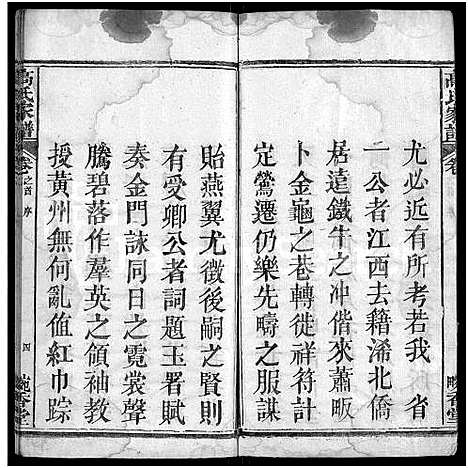 尤必近有所考若我 省
一公者江西去籍浠北僑
居遠鐵牛之冲偕來蕭畈
卜金龜之巷轉徙祥符計
定鶯遷仍樂先疇之服謀
貽燕翼尤徵後嗣之賢則
有受卿公者詞題玉署賦
奏金門詠同日之霓裳聲
騰碧落作羣英之領袖教
授黃州無何亂值紅巾踪
高氏家譜 卷之首 序 四
高氏家譜 卷